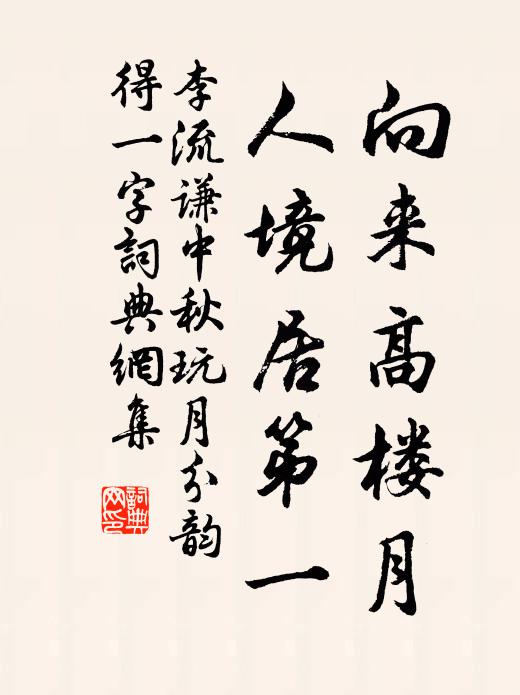 向来高楼月
人境居第一
李流谦中秋玩月分韵
得一字詞典網集
詞典
网印